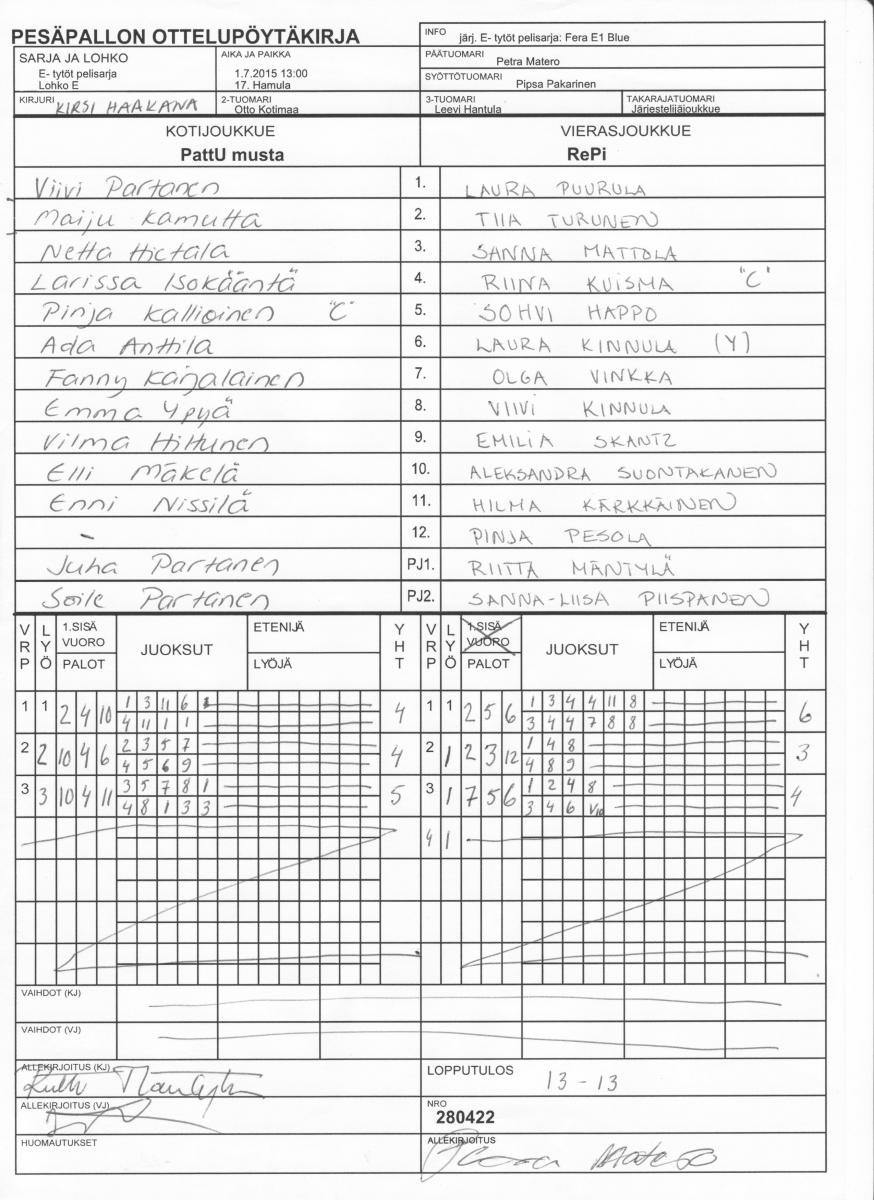 PESÄPALLON OTTELUPÖYTÄKIRJA
INFO järj. E- tytöt pelisarja: Fera E1 Blue
SARJA JA LOHKO
E- tytöt pelisarja
Lohko E
AIKA JA PAIKKA
1.7.2015 13:00
17. Hamula
PÄÄTUOMARI Petra Matero
SYÖTTÖTUOMARI Pipsa Pakarinen
KIRJURI KIRSI HAAKANA
2-TUOMARI Otto Kotimaa
3-TUOMARI Leevi Hantula
TAKARAJATUOMARI Järjestelijäjoukkue
KOTIJOUKKUE VIERASJOUKKUE
PattU musta RePi
Viivi Partanen 1. LAURA PUURULA
Maiju Kamutta 2. TIIA TURUNEN
Netta Hietala 3. SANNA MATTOLA
Larissa Isokääntä 4. RIINA KUISMA "C"
Pinja Kallioinen "C" 5. SOHVI HAPPO
Ada Anttila 6. LAURA KINNULA (Y)
Fanny Karjalainen 7. OLGA VINKKA
Emma Ypyä 8. VIIVI KINNULA
Vilma Hiltunen 9. EMILIA SKANTZ
Elli Mäkelä 10. ALEKSANDRA SUONTAKANEN
Enni Nissilä 11. HILMA KÄRKKÄINEN
- 12. PINJA PESOLA
Juha Partanen PJ1. RIITTA MÄNTYLÄ
Soile Partanen PJ2. SANNA-LIISA PIISPANEN
VRP LYÖ 1.SISÄ VUORO PALOT JUOKSUT ETENIJÄ LYÖJÄ YHT VRP LYÖ 1.SISÄ VUORO PALOT JUOKSUT ETENIJÄ LYÖJÄ YHT
1 1 2 4 10 1 3 11 6 4 1 1 2 5 6 1 3 4 4 11 8 6
4 11 1 1 3 4 4 7 8 8
2 2 10 4 6 2 3 5 7 4 2 1 2 3 12 1 4 8 3
4 5 6 9 4 8 9
3 3 10 4 11 3 5 7 8 1 5 3 1 7 5 6 1 2 4 8 4
4 8 1 3 3 3 4 6 V10
4 1
VAIHDOT (KJ)
VAIHDOT (VJ)
ALLEKIRJOITUS (KJ)
LOPPUTULOS 13 - 13
ALLEKIRJOITUS (VJ)
NRO
280422
HUOMAUTUKSET
ALLEKIRJOITUS Matero